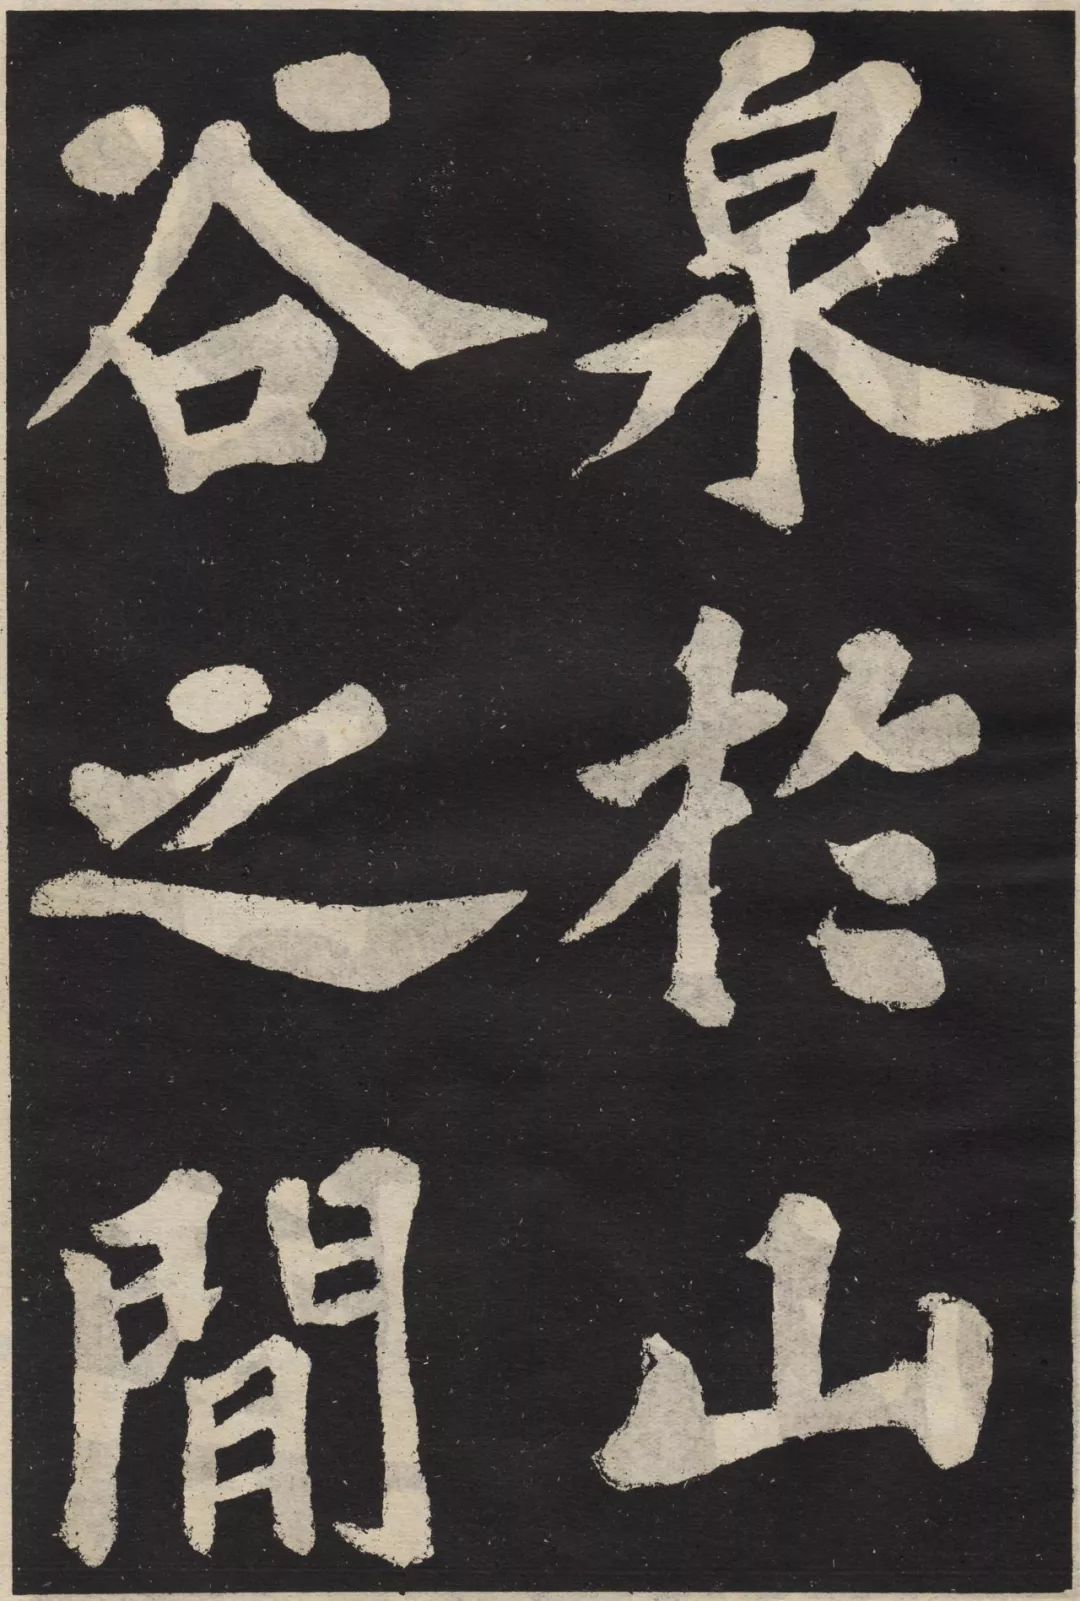 泉於山
谷之間